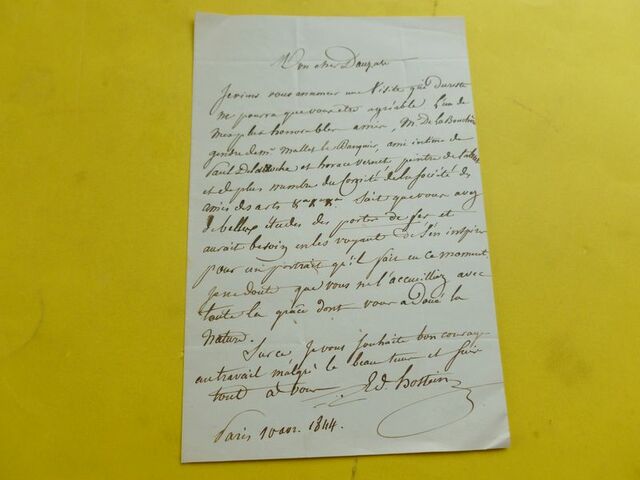 Mon cher Dauzats
Je viens vous annoncer une Visite qui du reste
ne pourra que vous être agréable L'un de
mes plus honorables amis, Mr De la Bouchère
gendre de Mr Mallet le Banquier, ami intime de
Paul Delaroche et horace Vernet, peintre de
et de plus membre du Comité de la Société des
amis des arts sait que vous avez
de belles études des portes de fer et
aurait besoin en les voyant de s'en inspirer
pour un portrait qu'il fait en ce moment
Je ne doute que vous ne l'accueilliez avec
toute la grâce dont vous a Doué la
Nature.
Sur ce, Je vous Souhaite bon courage
au travail malgré le beau tems et suis
tout à vous Ed. hostein
Paris 10 avr. 1844.